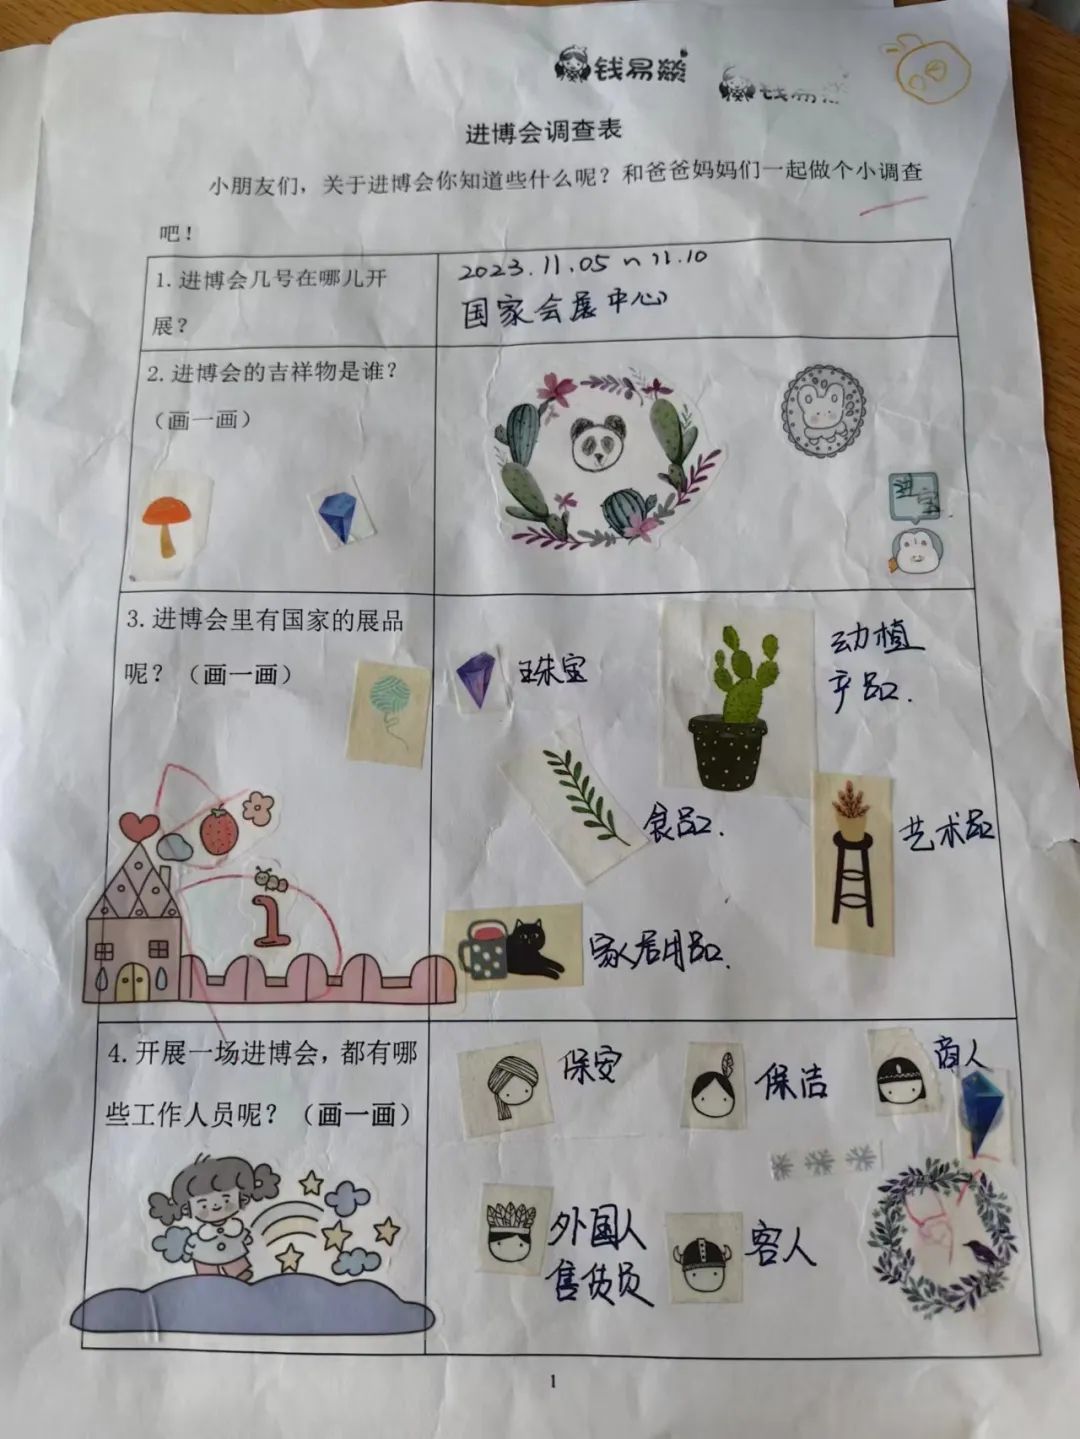 钱易燚
钱易燚
进博会调查表
小朋友们，关于进博会你知道些什么呢？和爸爸妈妈们一起做个小调查
吧！
1. 进博会几号在哪儿开
展？
2023.11.05~11.10
国家会展中心
2. 进博会的吉祥物是谁？
（画一画）
进宝
3. 进博会里有国家的展品
呢？（画一画）
珠宝
动植
产品.
食品.
艺术品
家居用品.
1
4. 开展一场进博会，都有哪
些工作人员呢？（画一画）
保安
保洁
商人
外国人
售货员
客人
1